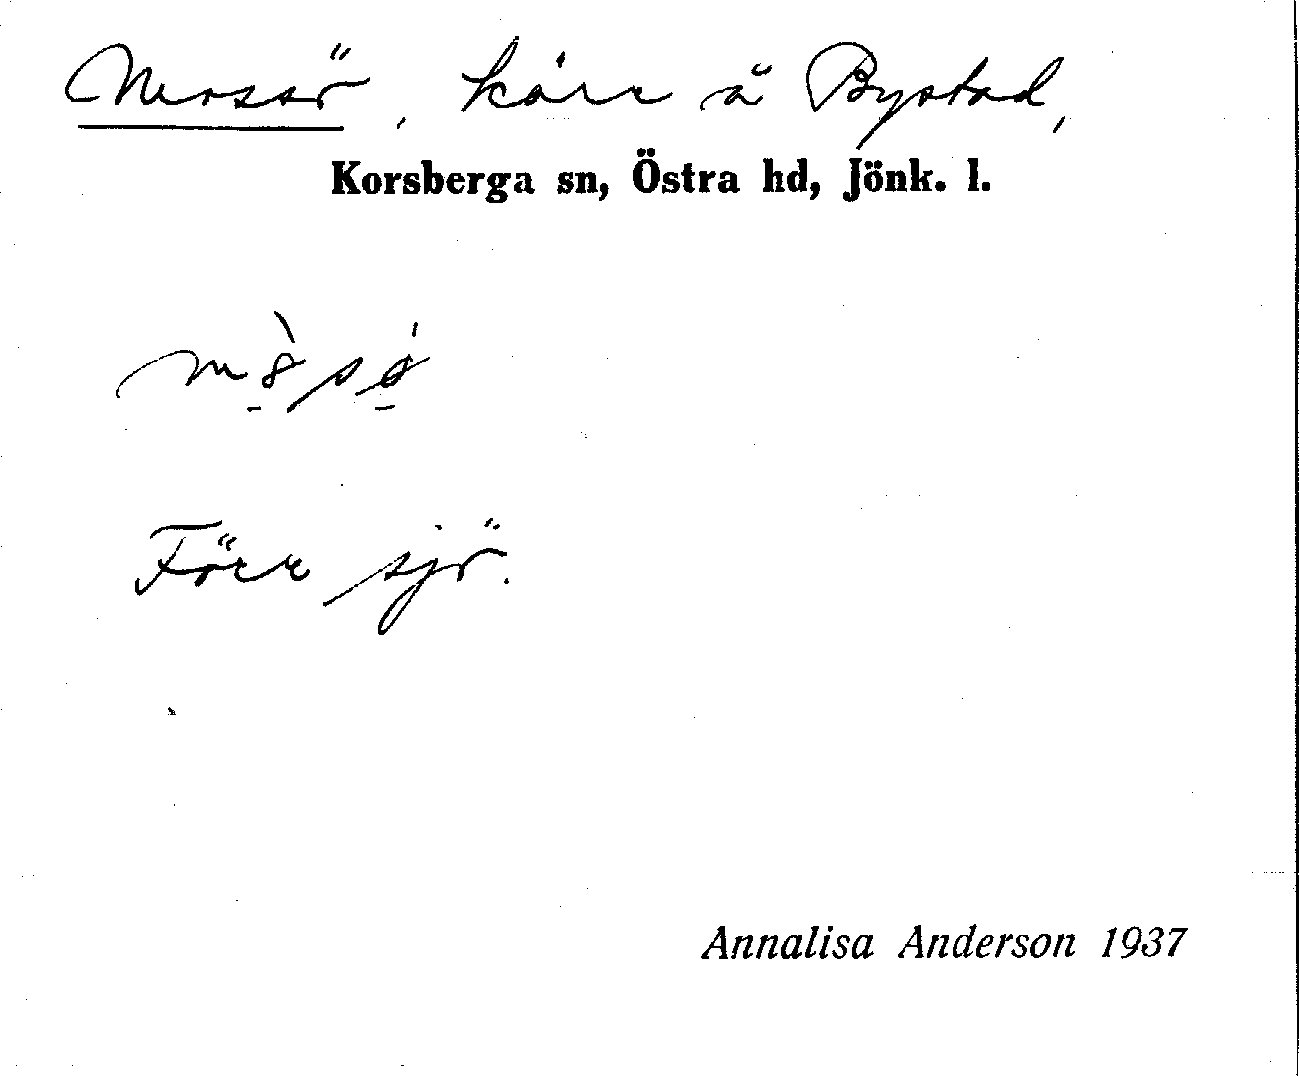 Mossö, kärr å Bystad,
Korsberga sn, Östra hd, Jönk. l.
Förr sjö.
Annalisa Anderson 1937